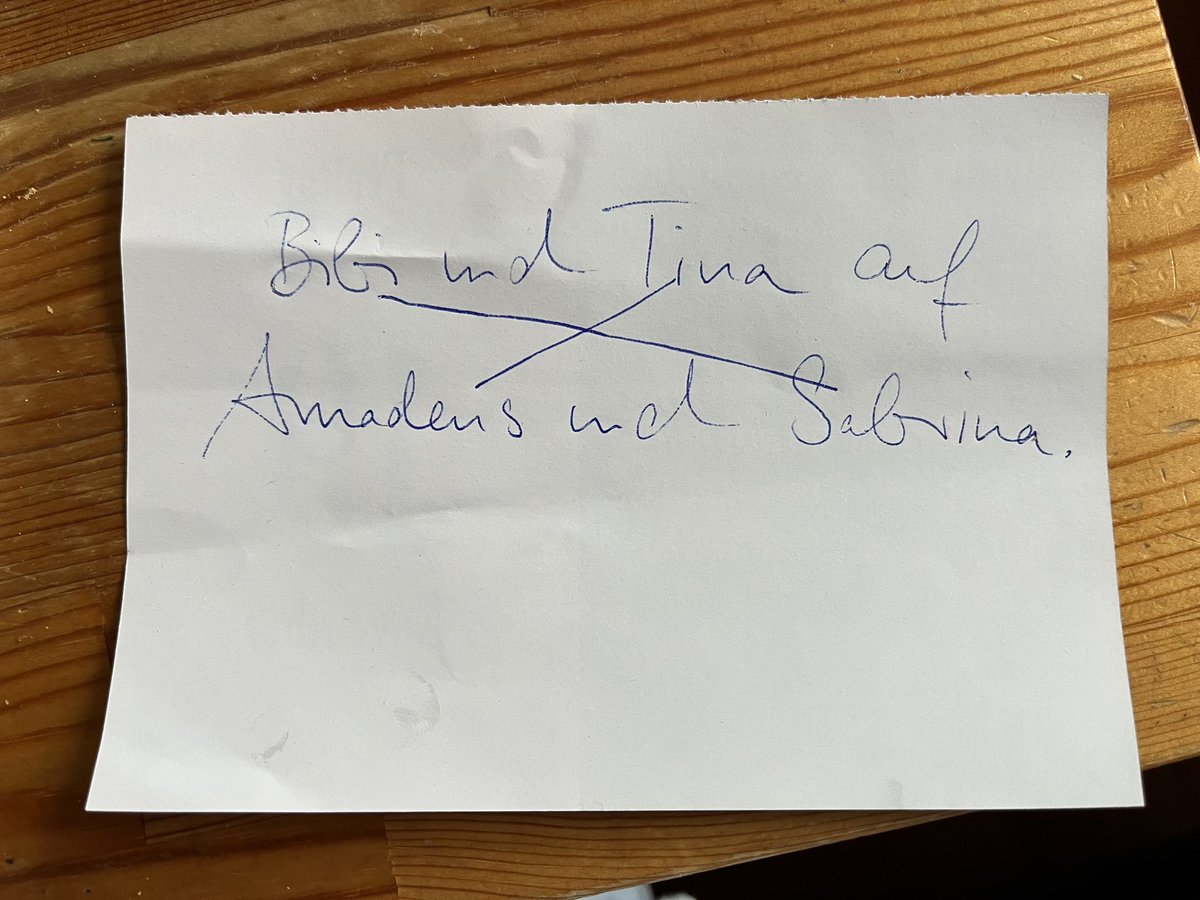 Bibi und Tina auf
Amadeus und Sabrina.